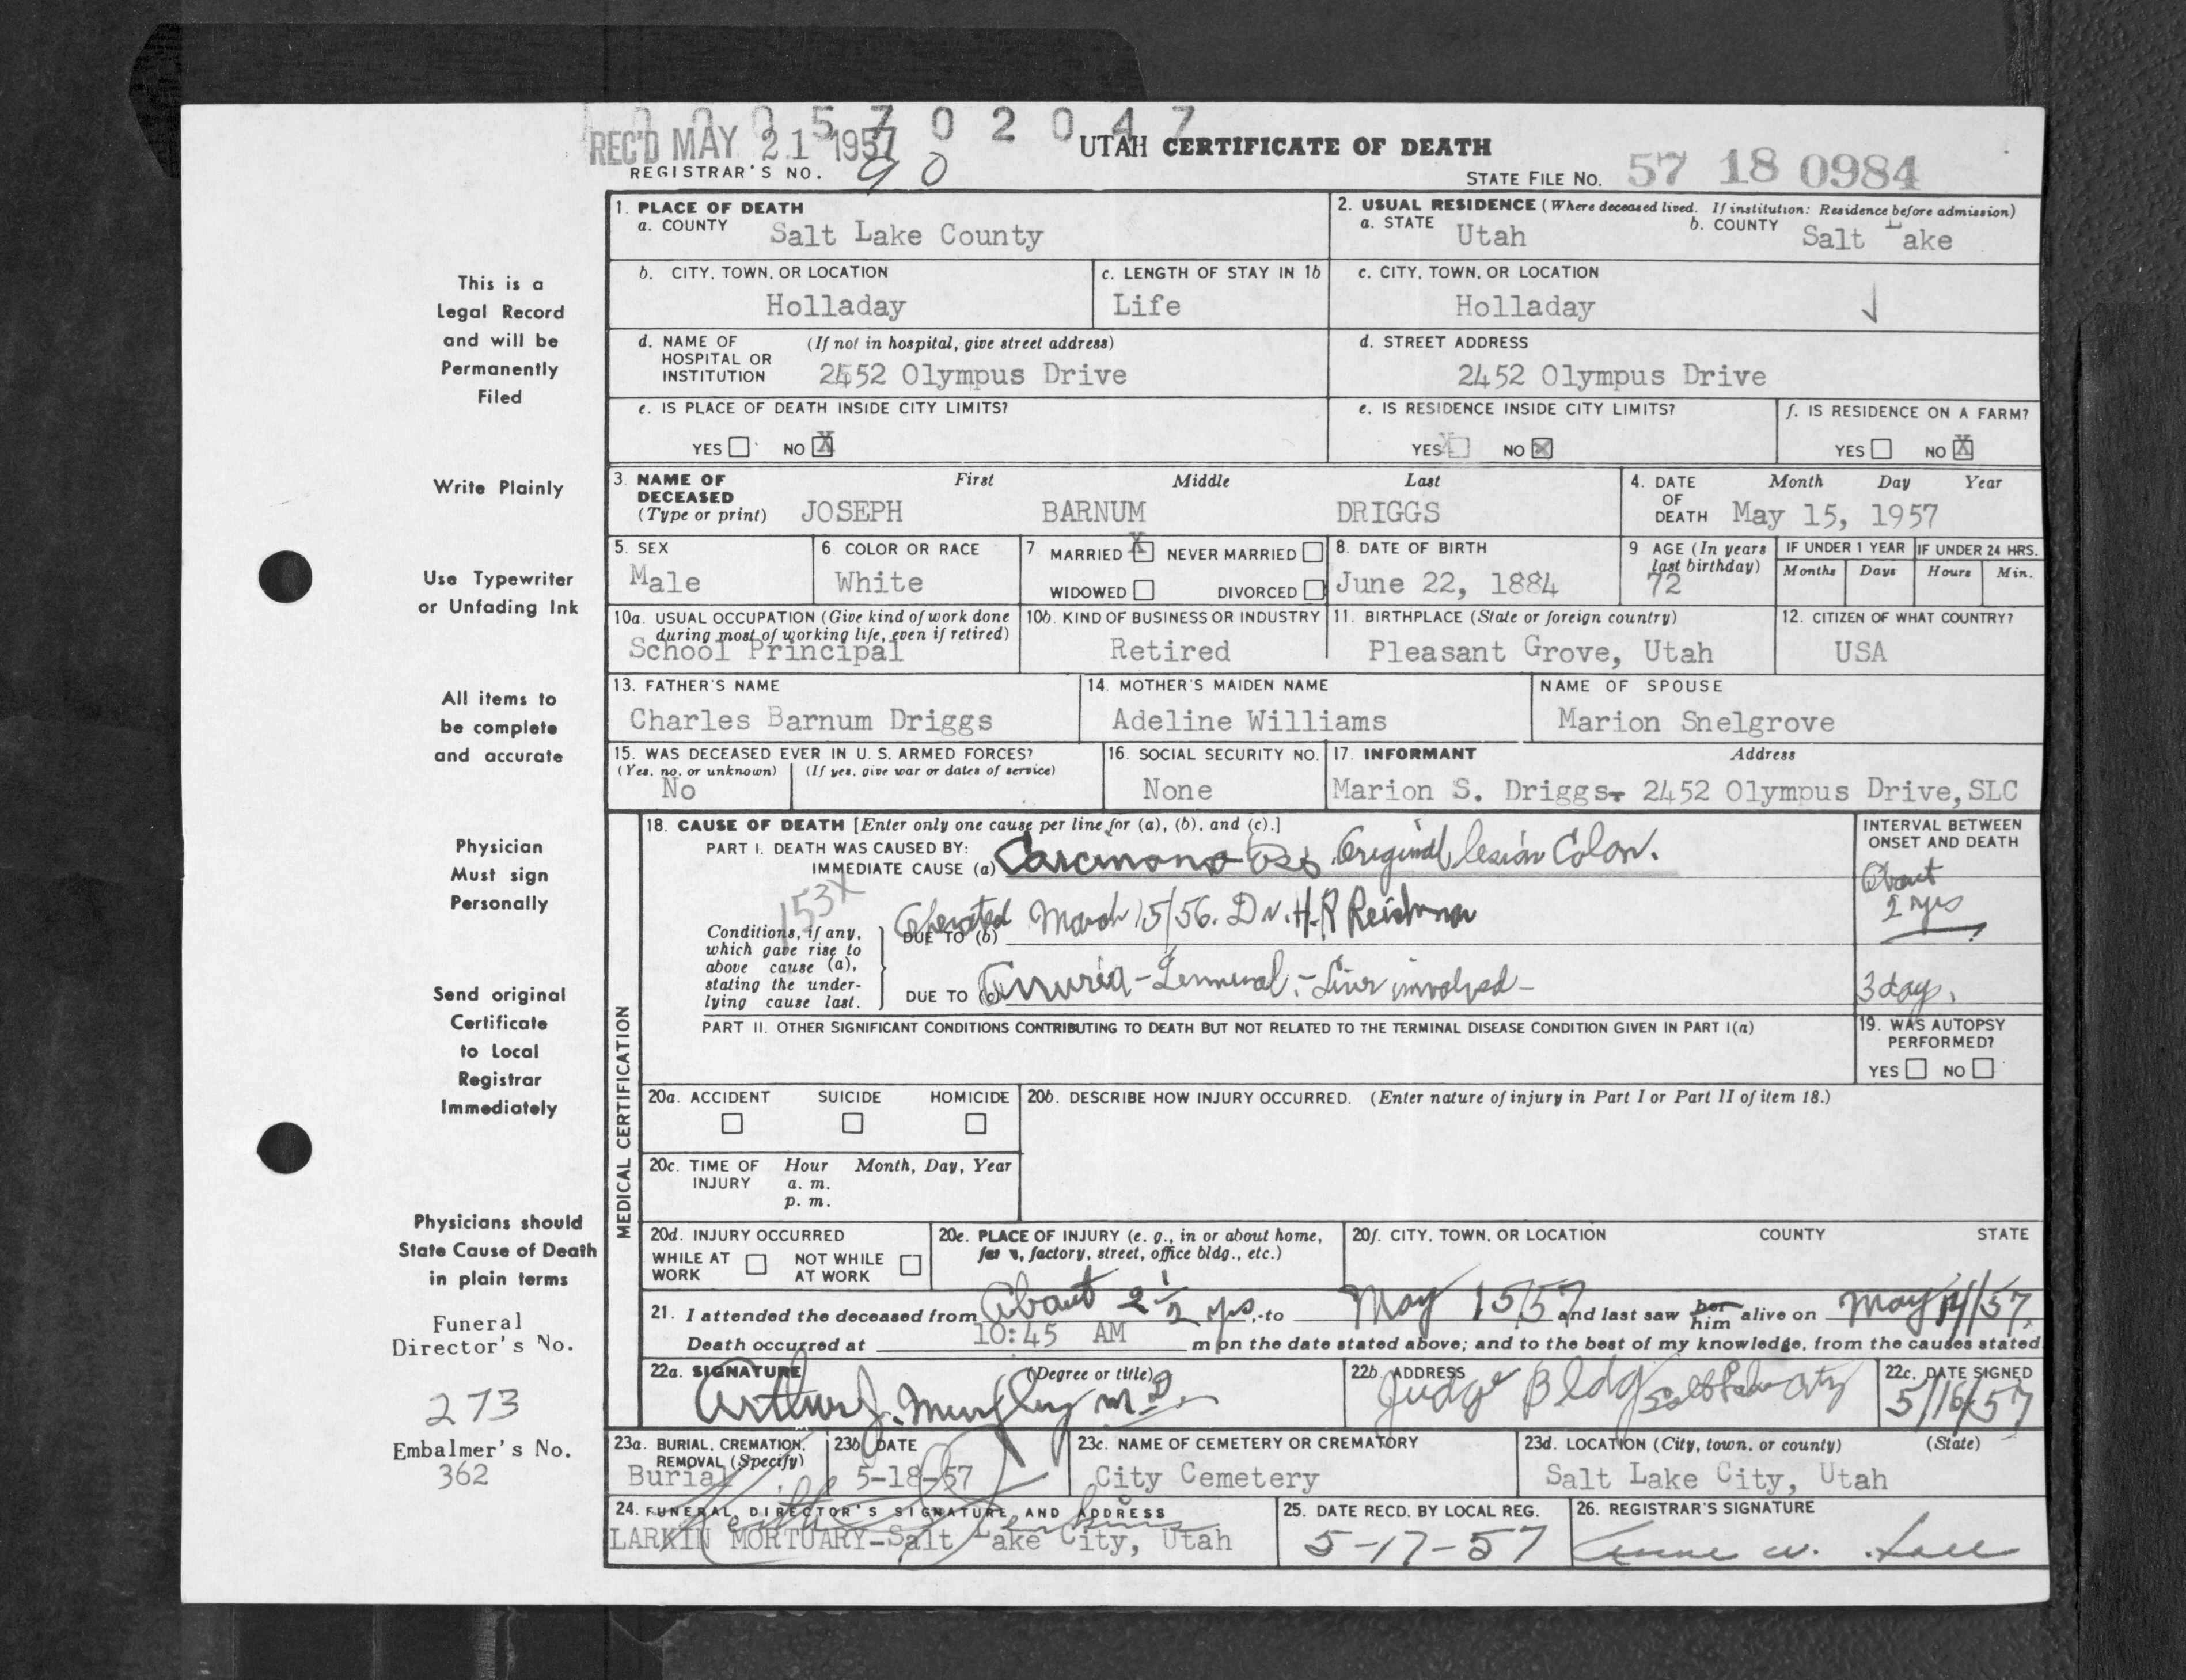 0005702047
REC'D MAY 21 1957
UTAH CERTIFICATE OF DEATH
REGISTRAR'S NO. 90
STATE FILE NO. 57 18 0984
1. PLACE OF DEATH
a. COUNTY Salt Lake County
2. USUAL RESIDENCE (Where deceased lived. If institution: Residence before admission)
a. STATE Utah b. COUNTY Salt Lake
b. CITY, TOWN, OR LOCATION Holladay
c. LENGTH OF STAY IN 1b Life
c. CITY, TOWN, OR LOCATION Holladay
d. NAME OF HOSPITAL OR INSTITUTION (If not in hospital, give street address) 2452 Olympus Drive
d. STREET ADDRESS 2452 Olympus Drive
e. IS PLACE OF DEATH INSIDE CITY LIMITS? YES NO X
e. IS RESIDENCE INSIDE CITY LIMITS? YES X NO X
f. IS RESIDENCE ON A FARM? YES NO X
3. NAME OF DECEASED (Type or print) First Middle Last
JOSEPH BARNUM DRIGGS
4. DATE OF DEATH Month Day Year
May 15, 1957
5. SEX Male
6. COLOR OR RACE White
7 MARRIED X NEVER MARRIED
WIDOWED DIVORCED
8. DATE OF BIRTH June 22, 1884
9 AGE (In years last birthday) 72
IF UNDER 1 YEAR Months Days
IF UNDER 24 HRS. Hours Min.
10a. USUAL OCCUPATION (Give kind of work done during most of working life, even if retired)
School Principal
10b. KIND OF BUSINESS OR INDUSTRY Retired
11. BIRTHPLACE (State or foreign country) Pleasant Grove, Utah
12. CITIZEN OF WHAT COUNTRY? USA
13. FATHER'S NAME Charles Barnum Driggs
14. MOTHER'S MAIDEN NAME Adeline Williams
NAME OF SPOUSE Marion Snelgrove
15. WAS DECEASED EVER IN U. S. ARMED FORCES?
(Yes, no, or unknown) (If yes, give war or dates of service)
No
16. SOCIAL SECURITY NO. None
17. INFORMANT Address
Marion S. Driggs- 2452 Olympus Drive, SLC
MEDICAL CERTIFICATION
18. CAUSE OF DEATH [Enter only one cause per line for (a), (b), and (c).]
PART I. DEATH WAS CAUSED BY:
IMMEDIATE CAUSE (a) Original lesion Colon.
INTERVAL BETWEEN ONSET AND DEATH
About 2 yrs
153X
Conditions, if any, which gave rise to above cause (a), stating the underlying cause last.
DUE TO (b) Operated March 15/56. Dr. H.R
DUE TO (c) Terminal - Liver involved -
3 days.
PART II. OTHER SIGNIFICANT CONDITIONS CONTRIBUTING TO DEATH BUT NOT RELATED TO THE TERMINAL DISEASE CONDITION GIVEN IN PART I(a)
19. WAS AUTOPSY PERFORMED?
YES NO
20a. ACCIDENT SUICIDE HOMICIDE
20b. DESCRIBE HOW INJURY OCCURRED. (Enter nature of injury in Part I or Part II of item 18.)
20c. TIME OF INJURY Hour Month, Day, Year
a. m.
p. m.
20d. INJURY OCCURRED
WHILE AT WORK NOT WHILE AT WORK
20e. PLACE OF INJURY (e. g., in or about home, farm, factory, street, office bldg., etc.)
20f. CITY, TOWN, OR LOCATION COUNTY STATE
21. I attended the deceased from About 2½ yrs, to May 15/57 and last saw her him alive on May 14/57.
Death occurred at 10:45 AM m on the date stated above; and to the best of my knowledge, from the causes stated
22a. SIGNATURE (Degree or title)
Arthur J. Murphy M.D.
22b. ADDRESS
Judge Bldg Salt Lake City
22c. DATE SIGNED
5/16/57
23a. BURIAL, CREMATION, REMOVAL (Specify)
Burial
23b DATE
5-18-57
23c. NAME OF CEMETERY OR CREMATORY
City Cemetery
23d. LOCATION (City, town, or county) (State)
Salt Lake City, Utah
24. FUNERAL DIRECTOR'S SIGNATURE AND ADDRESS
LARKIN MORTUARY-Salt Lake City, Utah
25. DATE RECD. BY LOCAL REG.
5-17-57
26. REGISTRAR'S SIGNATURE
This is a
Legal Record
and will be
Permanently
Filed
Write Plainly
Use Typewriter
or Unfading Ink
All items to
be complete
and accurate
Physician
Must sign
Personally
Send original
Certificate
to Local
Registrar
Immediately
Physicians should
State Cause of Death
in plain terms
Funeral
Director's No.
273
Embalmer's No.
362